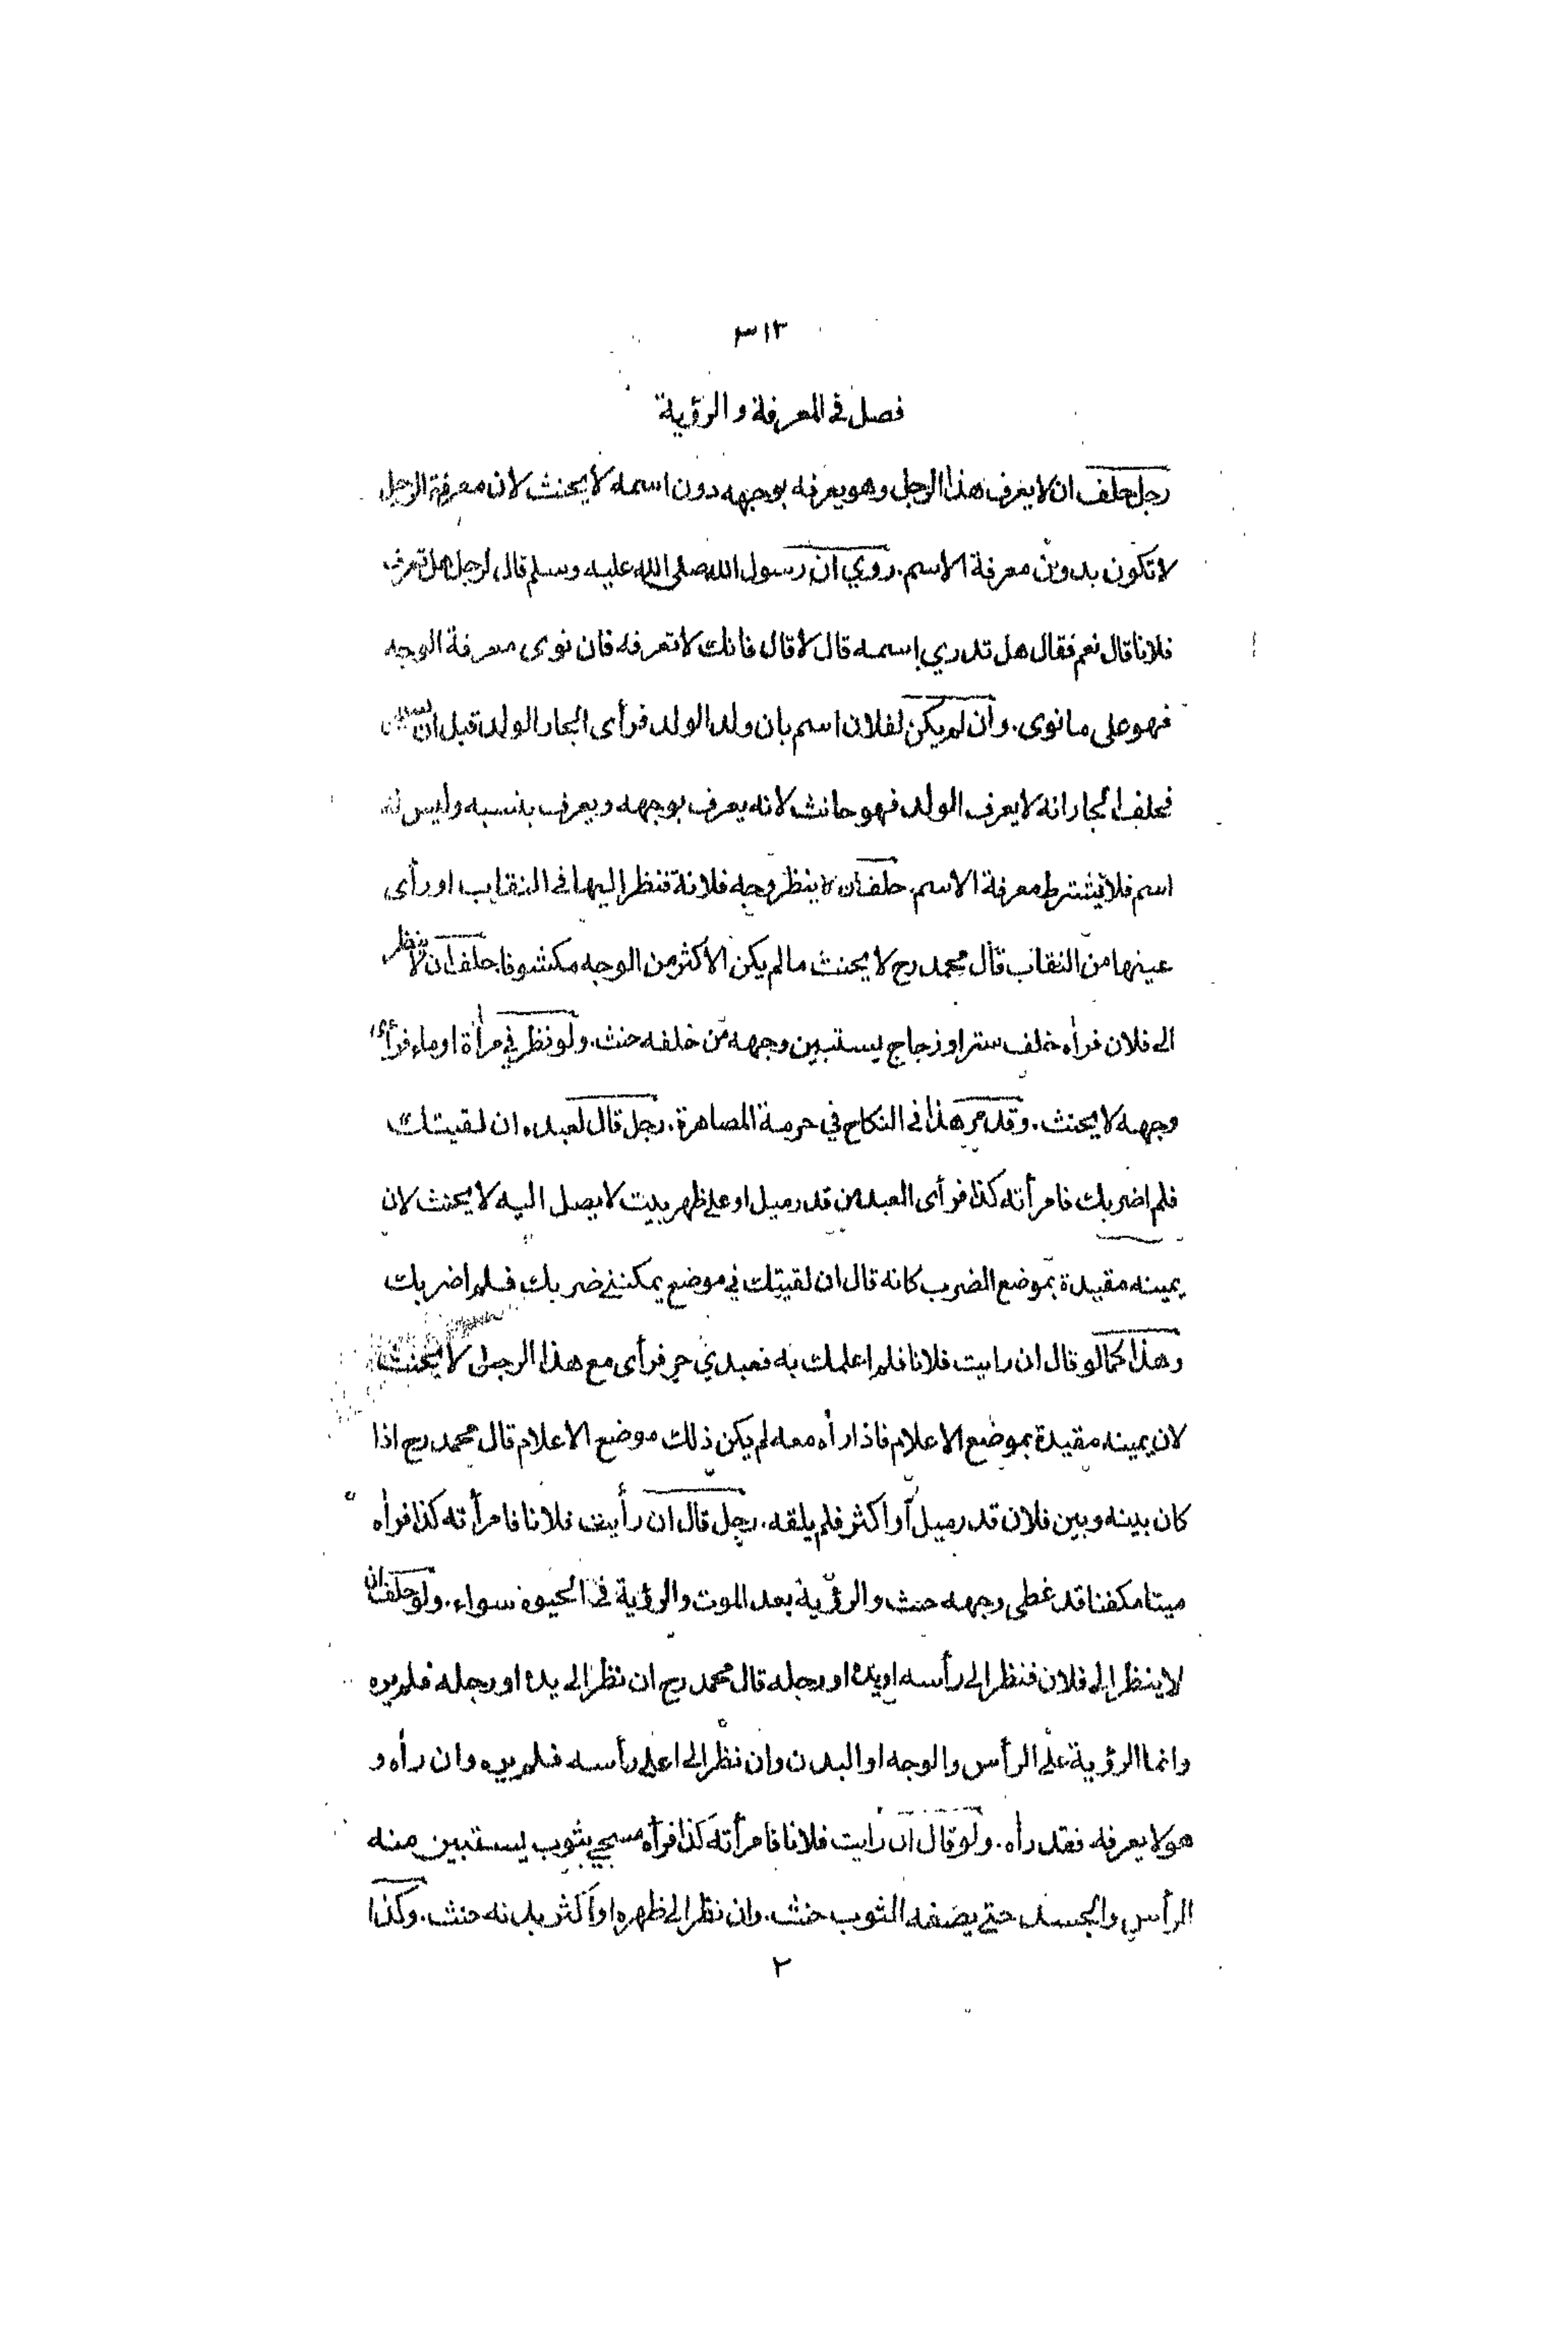 ٣١٣
فصل في المعرفة والرؤية
رجل حلف ان لا يعرف هذا الرجل وهو يعرفه بوجهه دون اسمه لا يحنث لان معرفة الرجل
لا تكون بدون معرفة الاسم. روي ان رسول الله صلى الله عليه وسلم قال لرجل هل تعرف
فلانا قال نعم فقال هل تدري إسمه قال لا قال فانك لا تعرفه فان نوى معرفة الوجه
فهو على ما نوى. وان لم يكن لفلان اسم بان ولد الولد فرأى الجار الولد قبل ان
فحلف الجار انه لا يعرف الولد فهو حانث لانه يعرف بوجهه ويعرف بنسبه وليس له
اسم فلا يشترط معرفة الاسم. حلف ان لا ينظر وجه فلانة فنظر اليها في النقاب او رأى
عينها من النقاب قال محمد رح لا يحنث ما لم يكن الاكثر من الوجه مكشوفا. حلف ان لا ينظر
الى فلان فرأه خلف ستر او زجاج يستبين وجهه من خلفه حنث. ولو نظر في مرأة او ماء فرأى
وجهه لا يحنث. وقد مر هذا في النكاح في حرمة المصاهرة. رجل قال لعبده ان لقيتك
فلم اضربك فامرأته كذا فرأى العبد من قدر ميل او على ظهر بيت لا يصل اليه لا يحنث لان
يمينه مقيدة بموضع الضرب كانه قال ان لقيتك في موضع يمكنني ضربك فلم اضربك
وهذا كما لو قال ان رايت فلانا فلم اعلمك به فعبدي حر فرأى مع هذا الرجل لا يحنث
لان يمينه مقيدة بموضع الاعلام فاذا رأه معه لم يكن ذلك موضع الاعلام قال محمد رح اذا
كان بينه وبين فلان قدر ميل او اكثر فلم يلقه. رجل قال ان رأيت فلانا فامرأته كذا فرأه
ميتا مكفنا قد غطى وجهه حنث والرؤية بعد الموت والرؤية في الحيوة سواء. ولو حلف ان
لا ينظر الى فلان فنظر الى رأسه او يده او رجله قال محمد رح ان نظر الى يده او رجله فلم يره
وانما الرؤية على الرأس والوجه او البدن وان نظر الى اعلى رأسه فلم يره وان رأه و
هو لا يعرفه فقد رأه. ولو قال ان رايت فلانا فامرأته كذا فرأه مسجى بثوب يستبين منه
الرأس والجسد حتى يصفه الثوب حنث. وان نظر الى ظهره او اكثر بدنه حنث. وكذا
٢